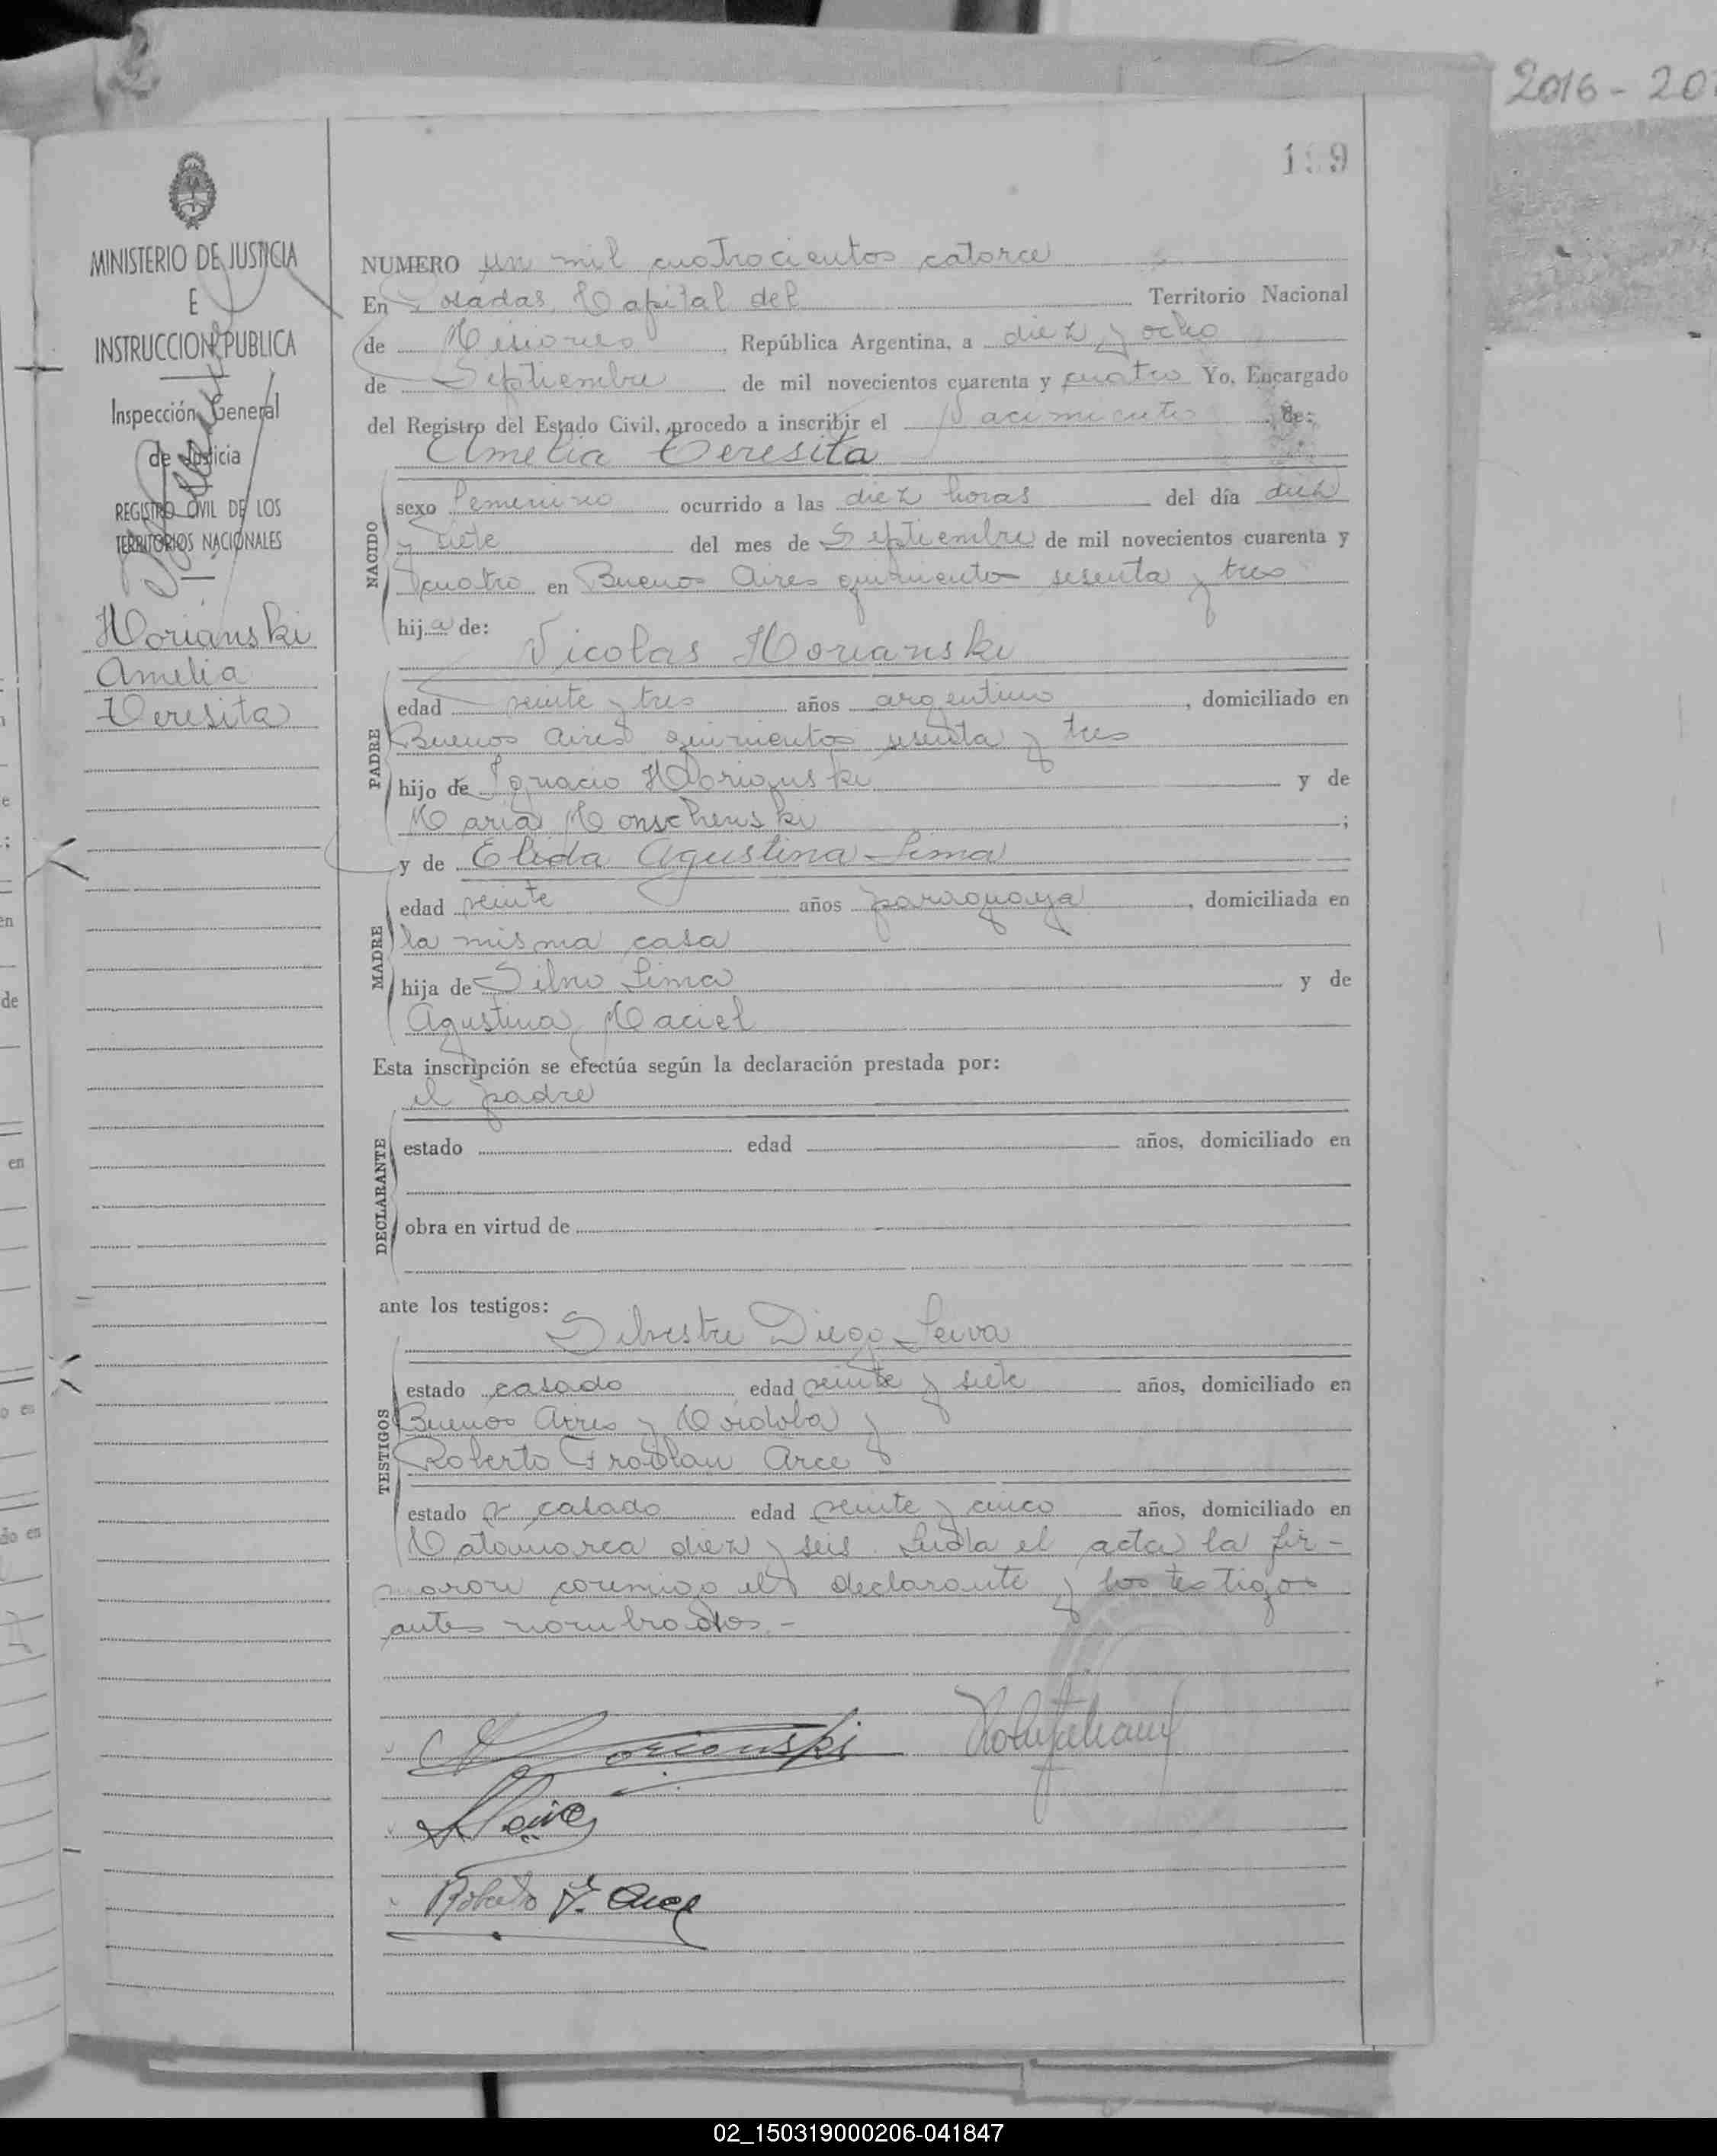 2016 - 20
189
MINISTERIO DE JUSTICIA
E
INSTRUCCION PUBLICA
Inspección General
de Justicia
REGISTRO CIVIL DE LOS
TERRITORIOS NACIONALES
Horianski
Amelia
Teresita
NUMERO un mil cuatrocientos catorce
En Posadas, Capital del Territorio Nacional
de Misiones, República Argentina, a diez y ocho
de Septiembre de mil novecientos cuarenta y cuatro Yo, Encargado
del Registro del Estado Civil, procedo a inscribir el Nacimiento de:
Amelia Teresita
NACIDO
sexo femenino ocurrido a las diez horas del día diez
y siete del mes de Septiembre de mil novecientos cuarenta y
cuatro en Buenos Aires quinientos sesenta y tres
hija de:
Nicolas Horianski
PADRE
edad veinte y tres años argentino, domiciliado en
Buenos Aires quinientos sesenta y tres
hijo de Ignacio Horianski y de
Maria Monschenski;
y de Elida Agustina Lima
MADRE
edad veinte años paraguaya, domiciliada en
la misma casa
hija de Silvio Lima y de
Agustina Maciel
Esta inscripción se efectúa según la declaración prestada por:
el padre
DECLARANTE
estado edad años, domiciliado en
obra en virtud de
ante los testigos:
Silvestre Diego Leiva
TESTIGOS
estado casado edad veinte y siete años, domiciliado en
Buenos Aires y Córdoba y
Roberto Froilan Arce
estado casado edad veinte y cinco años, domiciliado en
Catamarca diez y seis. Leida el acta la fir-
maron conmigo el declarante y los testigos
antes nombrados.-
N Horianski
S Leiva
Roberto F. Arce
02_150319000206-041847